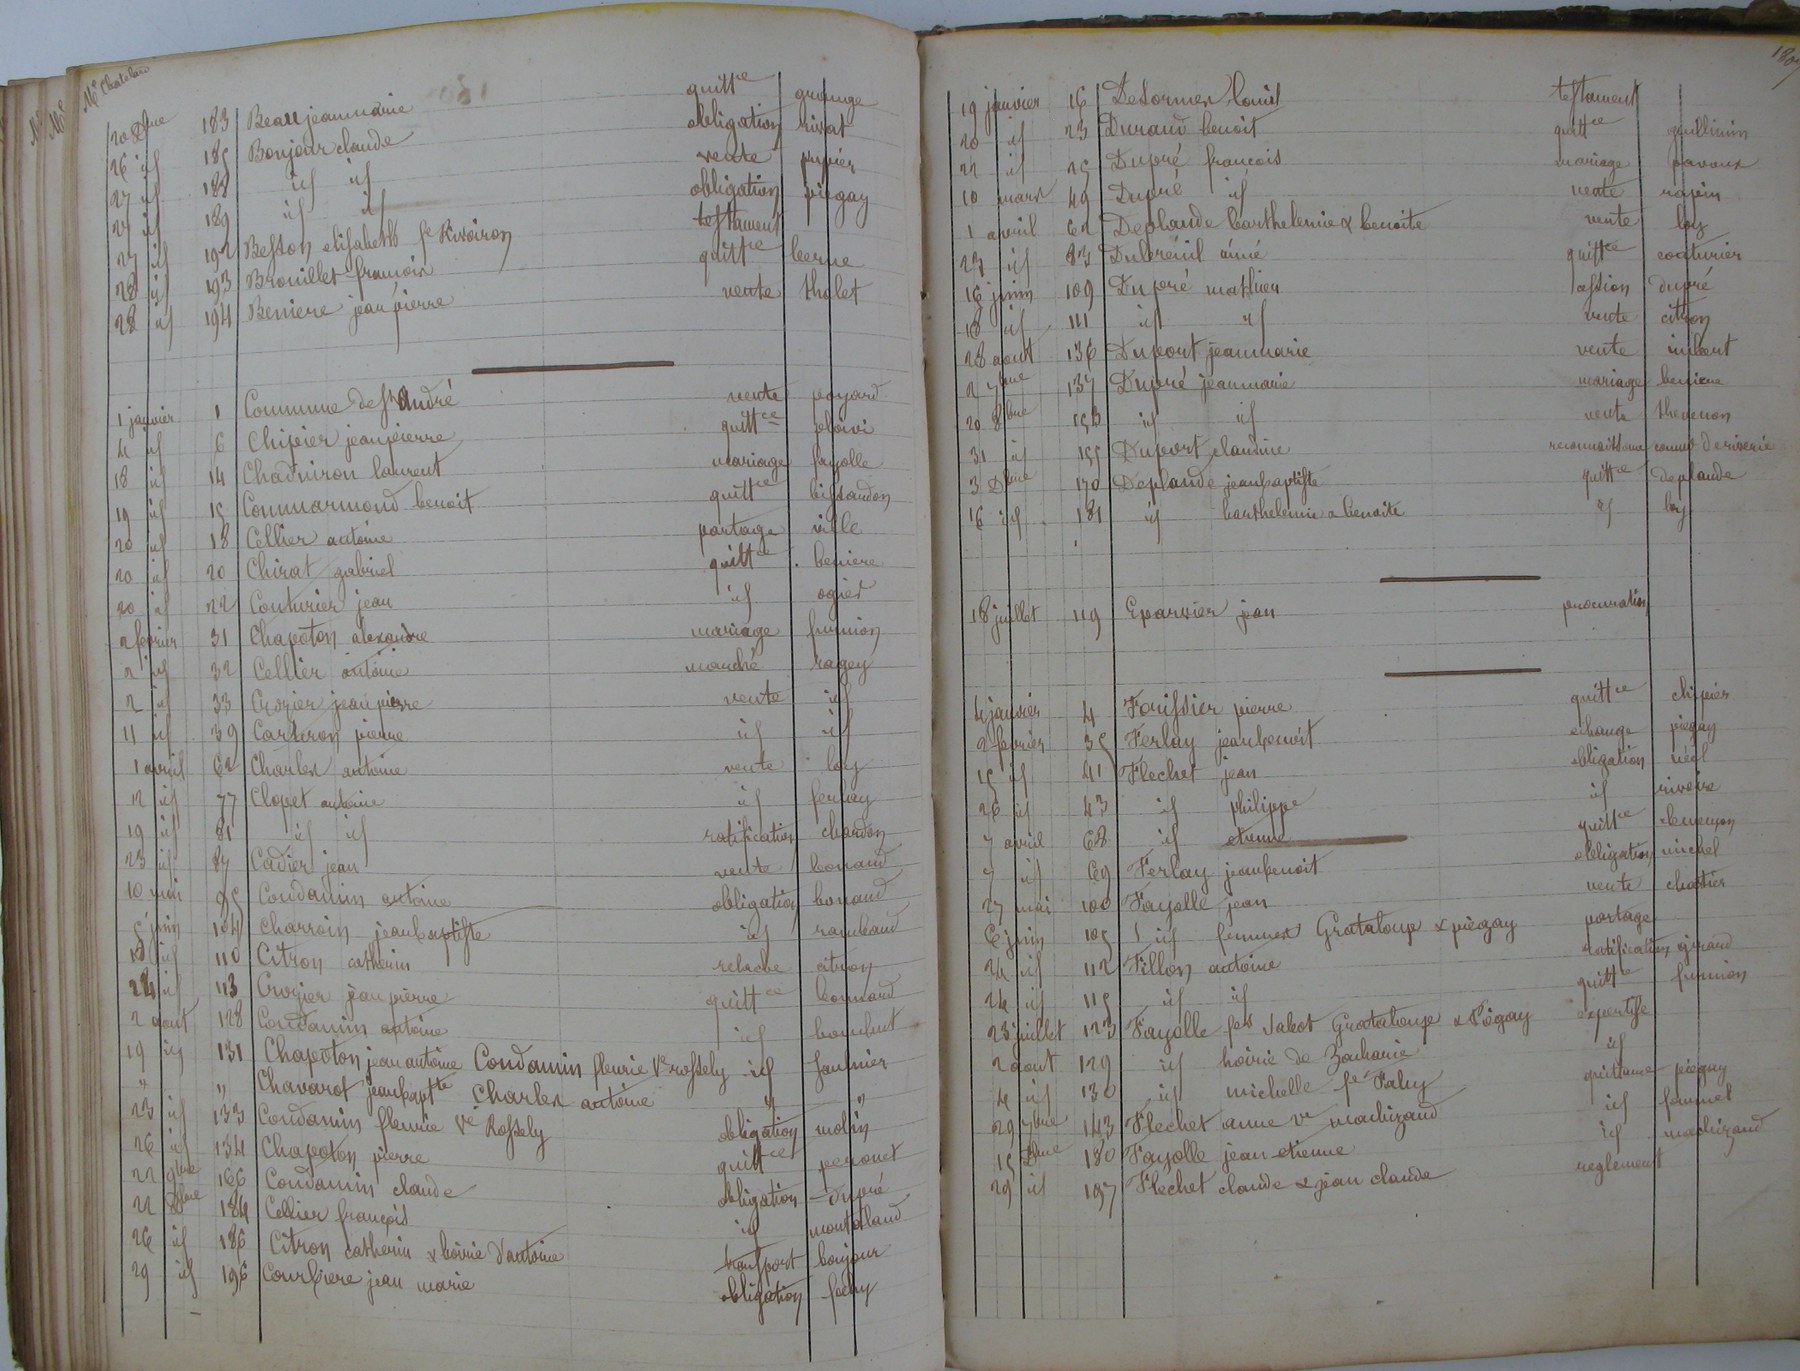 Me Chatelard
20 Dbre 183 Beau jeanmarie quittce grange
26 id 185 Bonjour claude obligation rivat
27 id 188 id id vente pupier
27 id 189 id id obligation piegay
27 id 192 Besson elisabeth fe Rivoiron testament
28 id 193 Brouillet francois quittce
28 id 194 Beniere jean pierre vente tholet
1 janvier 1 Commune de St André vente poyard
4 id 6 Chipier jeanpierre quittce
18 id 14 Chadviron laurent mariage fayolle
19 id 15 Commarmond benoit quittce bissardon
20 id 18 Cellier antoine partage ville
20 id 20 Chirat gabriel quittce beniere
20 id 22 Couturier jean id ogier
2 fevrier 31 Chapoton alexandre mariage
2 id 32 Cellier antoine marché ragey
2 id 33 Crozier jean pierre vente id
11 id 39 Carteron pierre id id
1 avril 62 Charles antoine vente loy
12 id 77 Clopet antoine id ferlay
19 id 81 id id ratification chardon
23 id 87 Cadier jean vente bonard
10 mai 95 Condamin antoine obligation bonard
5 juin 104 Charroin jeanbaptiste id rambaud
18 id 110 Citron catherin relache citron
24 id 113 Crozier jean pierre quittce bonnard
2 aout 128 Condamin antoine id
19 id 131 Chapoton jean antoine Condamin fleurie Ve rossely id Jaumier
" " Chavarot jeanbapte Charles antoine " "
23 id 133 Condamin fleurie Ve Rossely obligation molin
26 id 134 Chapoton pierre quittce peronet
22 9bre 166 Condamin claude obligation dupré
22 Dbre 184 Cellier françois id montaland
26 id 186 Citron catherin & hoirie d'antoine transport bonjour
29 id 196 Courbiere jean marie obligation
180
19 janvier 16 Desormes louis testament
20 id 23 Durand benoit quittce guillimin
22 id 25 Dupré francois mariage pavoux
10 mars 49 Dupré id vente rapin
1 avril 62 Deplaude barthelemie & benoite vente loy
23 id 83 Dubreuil aimé quittce couturier
16 juin 109 Dupré mathieu cession dupré
18 id 111 id id vente citron
28 aout 136 Duport jeanmarie vente imbert
2 7bre 137 Dupré jeanmarie mariage beniere
20 8bre 153 id id vente thevenon
31 id 155 Duport claudine reconnaissance comne de riverie
3 Dbre 170 Deplaude jeanbaptiste quittce deplaude
16 id 181 id barthelemie & benoite id loy
18 juillet 119 Eparvier jean procuration
4 janvier 4 Fouissier pierre quittce chipier
2 fevrier 35 Ferlay jeanbenoit echange piegay
15 id 41 Flechet jean obligation néel
26 id 43 id philippe id rivoire
7 avril 68 id etienne quittce clemençon
7 id 69 Ferlay jeanbenoit obligation michel
27 mai 100 Fayolle jean vente chatier
6 juin 105 id femmes Grataloup & piegay partage
24 id 112 Fillon antoine ratification girard
24 id 115 id id quittce
23 juillet 123 Fayolle fes Jabot Grataloup & Piégay expertise
2 aout 129 id hoirie de Zacharie id
4 id 130 id michelle fe quittance piegay
29 7bre 143 Flechet anne Ve machizaud id
15 Dbre 180 Fayolle jean etienne id machizaud
29 id 197 Flechet claude & jean claude reglement